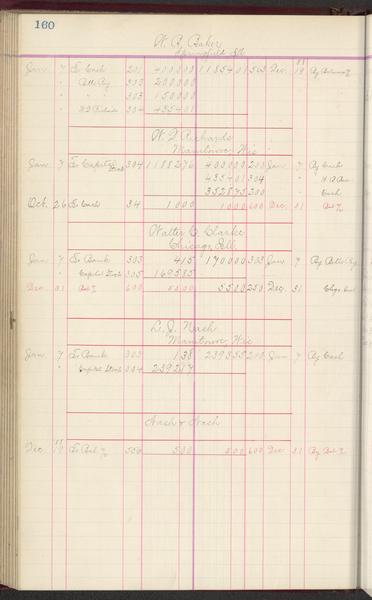 160
W. A. Baker
Springfield Ill
Jan. 7 To Cash 201 400000 1185401 503 Dec. 19 By Balance
" " Bills Pay 303 200000
" " " 303 150000
" " W. D. Richards 304 435401
W. D. Richards
Manitowoc, Wis
Jan. 7 To Capital Stock 304 1188276 400000 210 Jan 7 By Cash
435401 304 "
352875 200 " Cash
Oct. 26 To Cash 34 1000 1000 600 Dec. 31 Bal
Walter C. Clarke
Chicago, Ill.
Jan. 7 To Bank 303 415 170000 303 Jan 7 By Bills Pay
" Capital Stock 305 169585
Dec. 31 Bal 600 5500 5500 250 Dec. 31
L. J. Nash
Manitowoc, Wis
Jan. 7 To Bank 303 138 239355 210 Jan 7 By Cash
" Capital Stock 304 239217
Nash & Nash
Dec. 19 To Bal 550 500 500 600 Dec. 31 By Bal